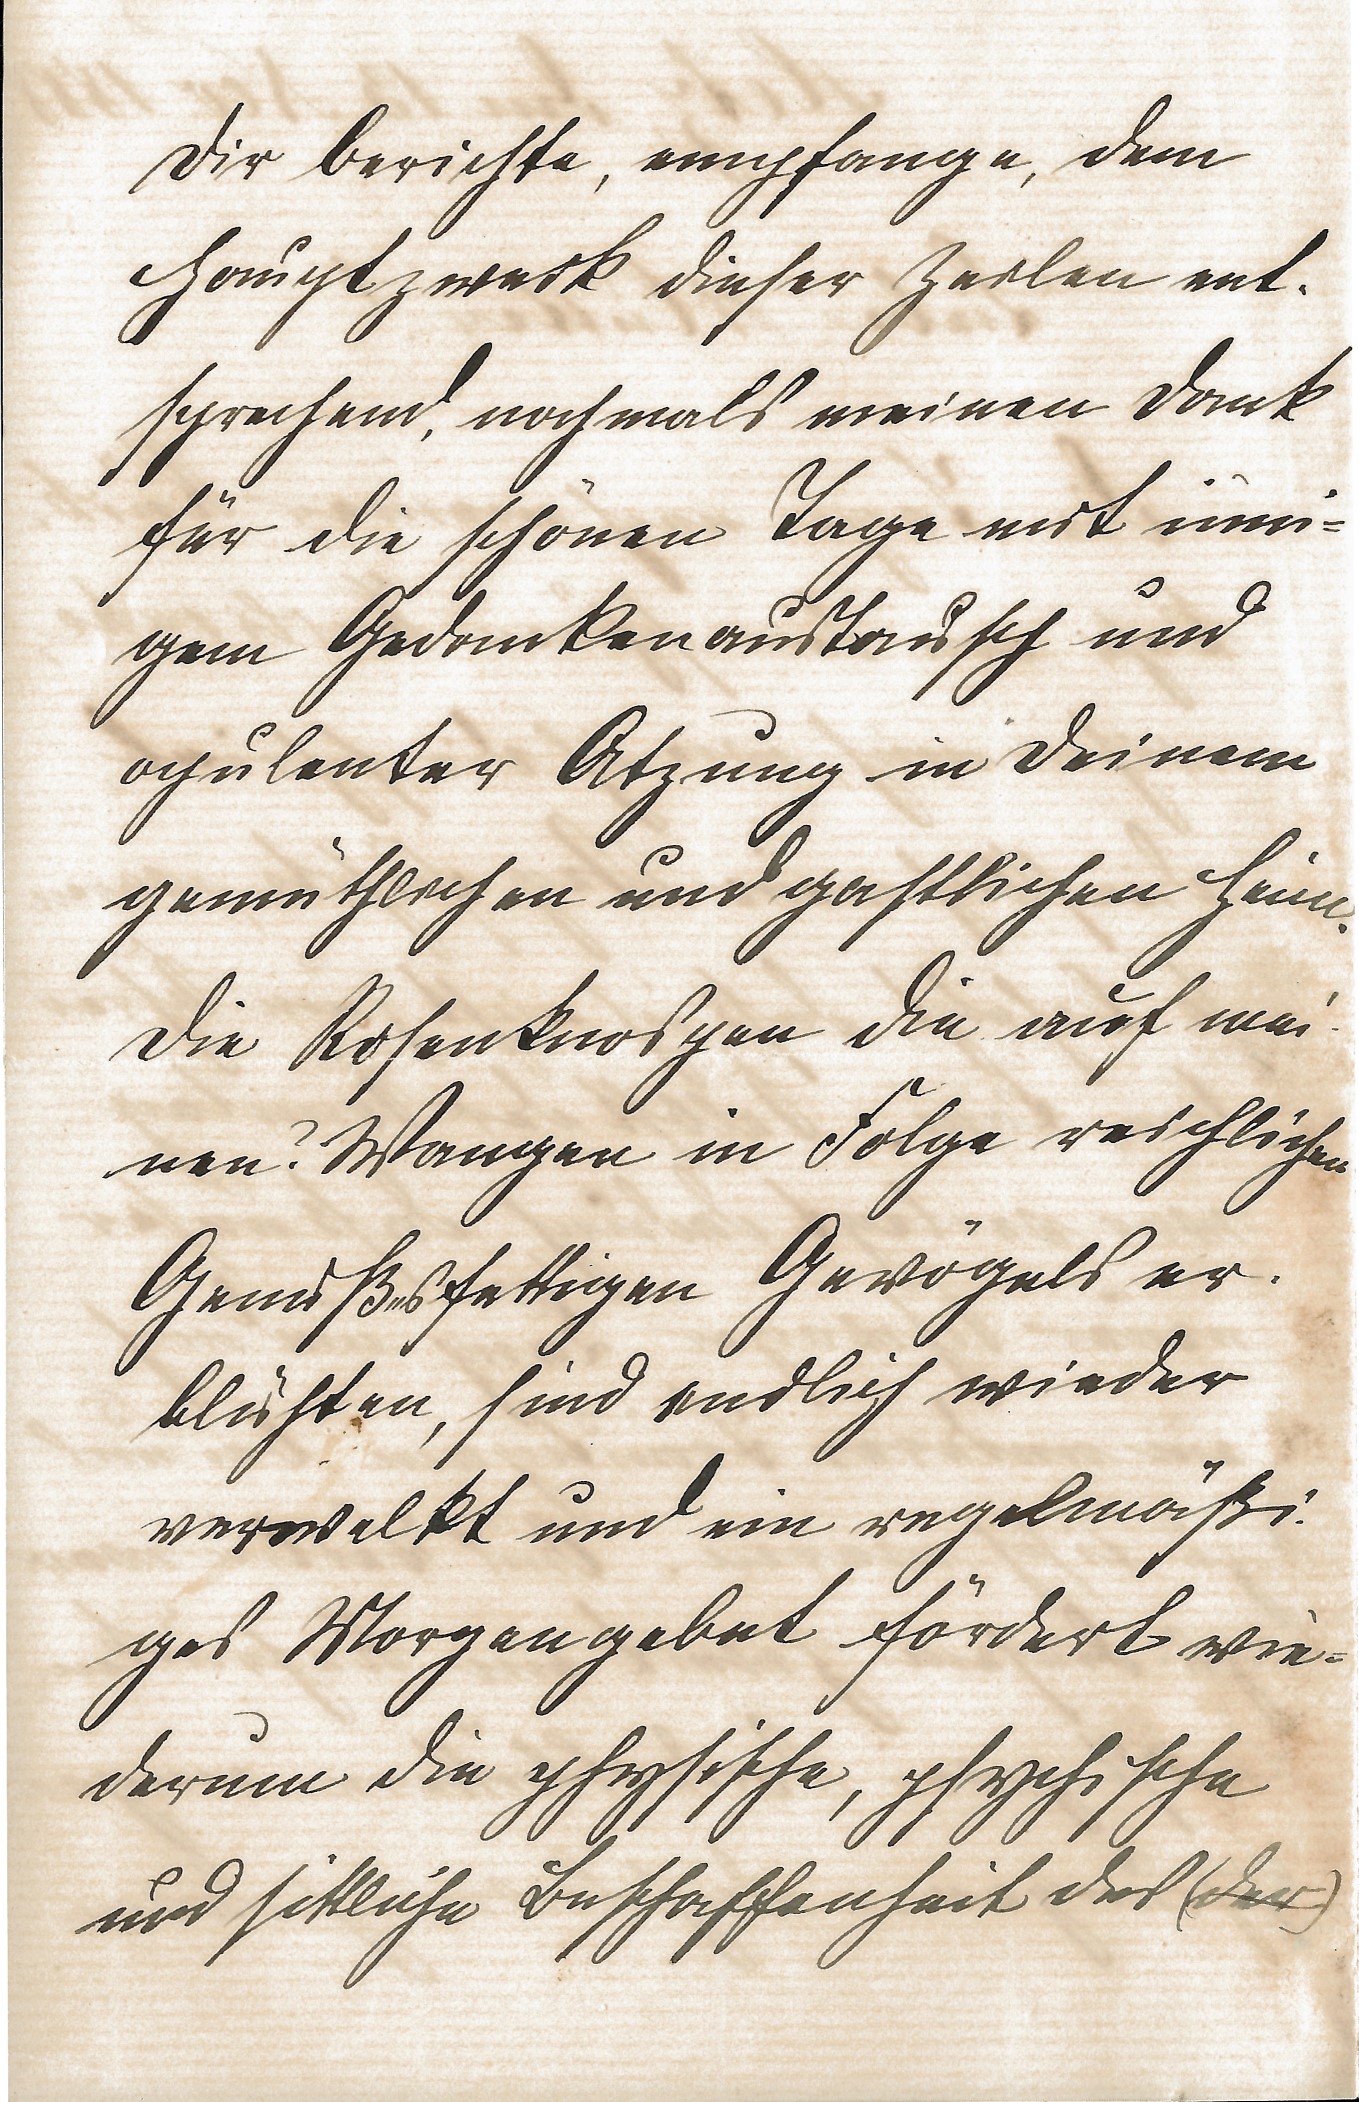 Dir berichte, empfange, dem
Hauptzweck dieser Zeilen ent-
sprechend, nochmals meinen Dank
für die schönen Tage mit inni=
gem Gedankenaustausch und
opulenter Atzung in Deinem
gemüthlichen und gastlichen Heim.
Die Rosenknospen die auf mei-
nen? Wangen in Folge reichlichen
Genußes fettigen Gevögels er-
blühten, sind endlich wieder
verwelkt und ein regelmäßi-
ges Morgengebet fördert wie=
derum die physische, psychische
und sittliche Beschaffenheit des (der)